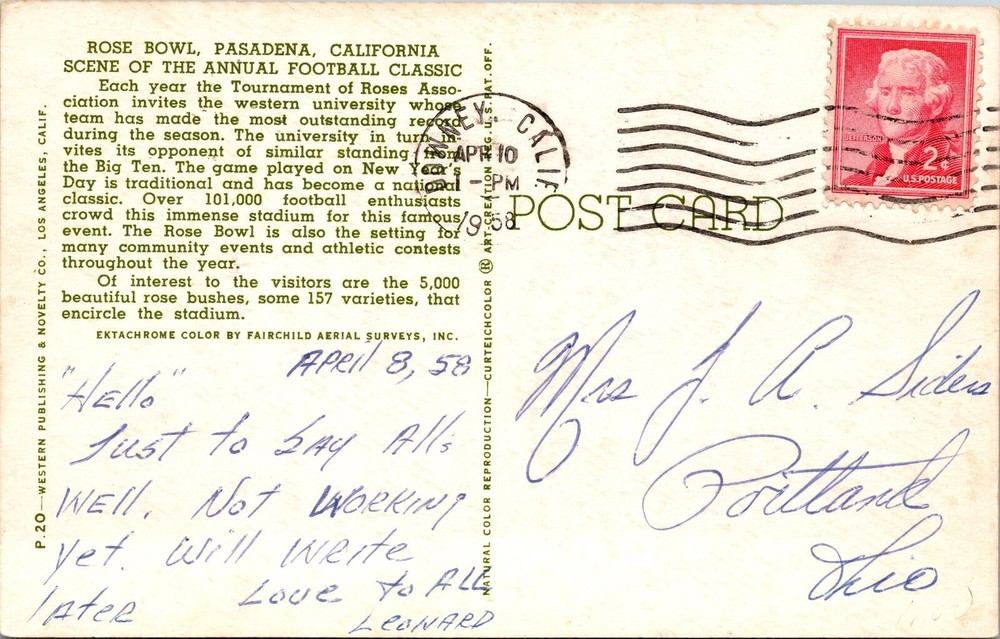 ROSE BOWL, PASADENA, CALIFORNIA
SCENE OF THE ANNUAL FOOTBALL CLASSIC
Each year the Tournament of Roses Asso-
ciation invites the western university whose
team has made the most outstanding record
during the season. The university in turn in-
vites its opponent of similar standing from
the Big Ten. The game played on New Year's
Day is traditional and has become a national
classic. Over 101,000 football enthusiasts
crowd this immense stadium for this famous
event. The Rose Bowl is also the setting for
many community events and athletic contests
throughout the year.
Of interest to the visitors are the 5,000
beautiful rose bushes, some 157 varieties, that
encircle the stadium.
EKTACHROME COLOR BY FAIRCHILD AERIAL SURVEYS, INC.
P.20—WESTERN PUBLISHING & NOVELTY CO., LOS ANGELES, CALIF.
NATURAL COLOR REPRODUCTION—CURTEICHCOLOR ® ART-CREATION REG. U.S. PAT. OFF.
April 8, 58
"Hello"
Just to say All's
Well. Not Working
yet. Will Write
later Love to All
Leonard
DOWNEY, CALIF.
APR 10
1 - PM
1958
POST CARD
JEFFERSON
2¢
U.S. POSTAGE
Mrs J. A. Siders
Portland
Ohio